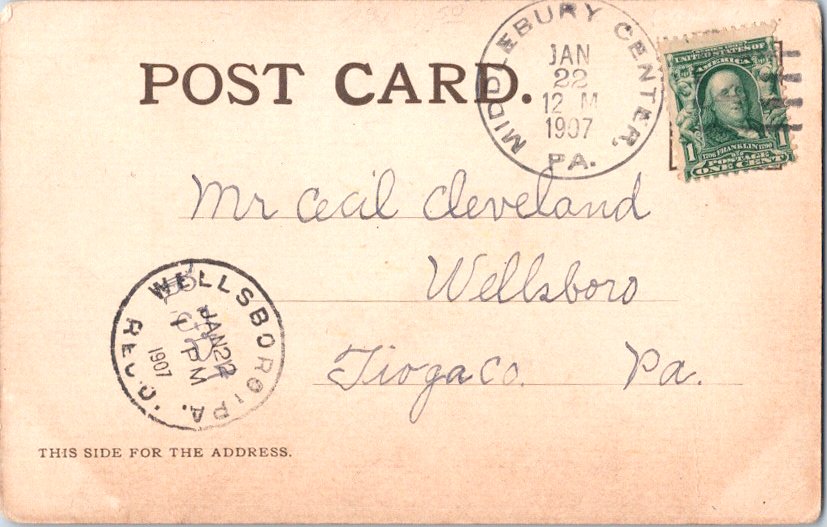 POST CARD.
MIDDLEBURY CENTER, PA.
JAN
22
12 M
1907
UNITED STATES OF
AMERICA
1 1706 FRANKLIN 1790 1
POSTAGE
ONE CENT
Mr Cecil Cleveland
Wellsboro
Tioga Co. Pa.
WELLSBORO, PA. REC'D.
JAN 22
1 PM
1907
THIS SIDE FOR THE ADDRESS.